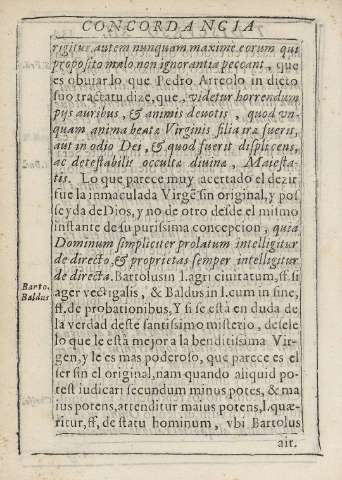 CONCORDANCIA
rigitur, autem nunquam maxime eorum qui
proposito malo, non ignorantia peccant, que
es obuiar lo que Pedro Arreolo in dicto
suo tractatu dize, que, videtur horrendum
pys auribus, & animis deuotis, quod vn-
quam anima beatæ Virginis filia iræ fuerit,
aut in odio Dei, & quod fuerit displicens,
ac detestabilis occultæ diuinæ, Maiesta-
tis. Lo que parece muy acertado el dezir
fue la inmaculada Virgẽ sin original, y pos
seyda de Dios, y no de otro desde el mismo
instante de su purissima concepcion, quia
Dominum simpliciter prolatum intelligitur
de directo, & proprietas semper intelligitur
de directa. Bartolus in l. agri ciuitatum, ff. si
Barto.
Baldus
ager vectigalis, & Baldus in l. cum in fine,
ff. de probationibus, Y si se está en duda de
la verdad deste santissimo misterio, desele
lo que le está mejor a la benditissima Vir-
gen, y le es mas poderoso, que parece es el
ser sin el original, nam quando aliquid po-
test iudicari secundum minus potes, & ma
ius potens, attenditur maius potens, l. quæ-
ritur, ff. de statu hominum, vbi Bartolus
ait.